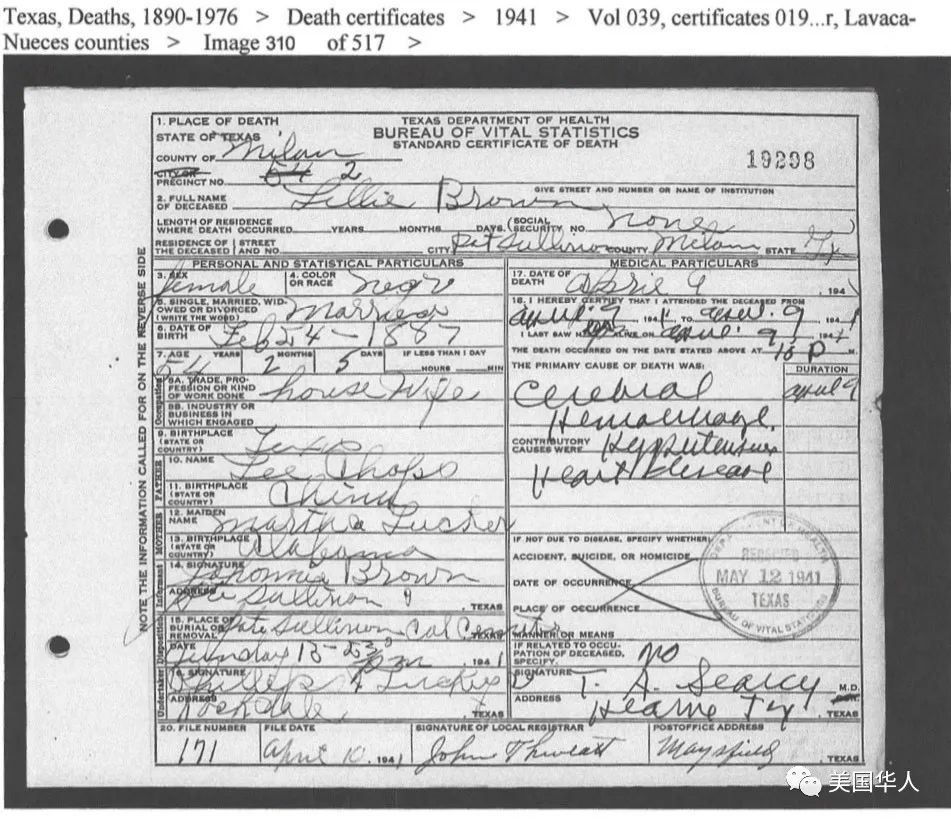 Texas, Deaths, 1890-1976 > Death certificates > 1941 > Vol 039, certificates 019...r, Lavaca-
Nueces counties > Image 310 of 517 >
NOTE THE INFORMATION CALLED FOR ON THE REVERSE SIDE
TEXAS DEPARTMENT OF HEALTH
BUREAU OF VITAL STATISTICS
STANDARD CERTIFICATE OF DEATH
19298
1. PLACE OF DEATH
STATE OF TEXAS
COUNTY OF Milam
CITY OR
PRECINCT NO. 2
GIVE STREET AND NUMBER OR NAME OF INSTITUTION
2. FULL NAME
OF DECEASED Lillie Brown
LENGTH OF RESIDENCE
WHERE DEATH OCCURRED YEARS MONTHS DAYS (SOCIAL SECURITY NO. none
RESIDENCE OF THE DECEASED STREET AND NO. CITY COUNTY Milam STATE Tx
PERSONAL AND STATISTICAL PARTICULARS
3. SEX female
4. COLOR OR RACE Negro
5. SINGLE, MARRIED, WIDOWED OR DIVORCED
(WRITE THE WORD) Married
6. DATE OF BIRTH Feb 24-1887
7. AGE 54 YEARS 2 MONTHS 5 DAYS IF LESS THAN 1 DAY
HOURS MIN
Occupation
8A. TRADE, PROFESSION OR KIND OF WORK DONE house Wife
8B. INDUSTRY OR BUSINESS IN WHICH ENGAGED
9. BIRTHPLACE
(STATE OR COUNTRY) Texas
FATHER
10. NAME Lee Chops
11. BIRTHPLACE
(STATE OR COUNTRY) China
MOTHER
12. MAIDEN NAME Martha Tucker
13. BIRTHPLACE
(STATE OR COUNTRY) Alabama
Informant
14. SIGNATURE Brown
ADDRESS , TEXAS
Disposition
15. PLACE OF BURIAL OR REMOVAL Col , TEXAS
DATE Sunday 13 1941
Undertaker
16. SIGNATURE Phillips & Luckey
ADDRESS Rockdale , TEXAS
MEDICAL PARTICULARS
17. DATE OF DEATH April 9 , 194
18. I HEREBY CERTIFY THAT I ATTENDED THE DECEASED FROM
April 9 1941 TO April 9 , 1941
I LAST SAW H ALIVE ON April 9 1941
THE DEATH OCCURRED ON THE DATE STATED ABOVE AT P M.
THE PRIMARY CAUSE OF DEATH WAS: DURATION
Cerebral April 9
Hemorrhage
CONTRIBUTORY CAUSES WERE Hypertensive
Heart disease
IF NOT DUE TO DISEASE, SPECIFY WHETHER:
ACCIDENT, SUICIDE, OR HOMICIDE
DATE OF OCCURRENCE
PLACE OF OCCURRENCE
MANNER OR MEANS
IF RELATED TO OCCUPATION OF DECEASED, SPECIFY. no
SIGNATURE T. A. Searcy M.D.
ADDRESS Hearne Tx , TEXAS
DEPARTMENT OF HEALTH
RECEIVED
MAY 12 1941
TEXAS
BUREAU OF VITAL STATISTICS
20. FILE NUMBER FILE DATE SIGNATURE OF LOCAL REGISTRAR POSTOFFICE ADDRESS
171 April 10, 1941 John Thweatt Maysfield , TEXAS
美国华人